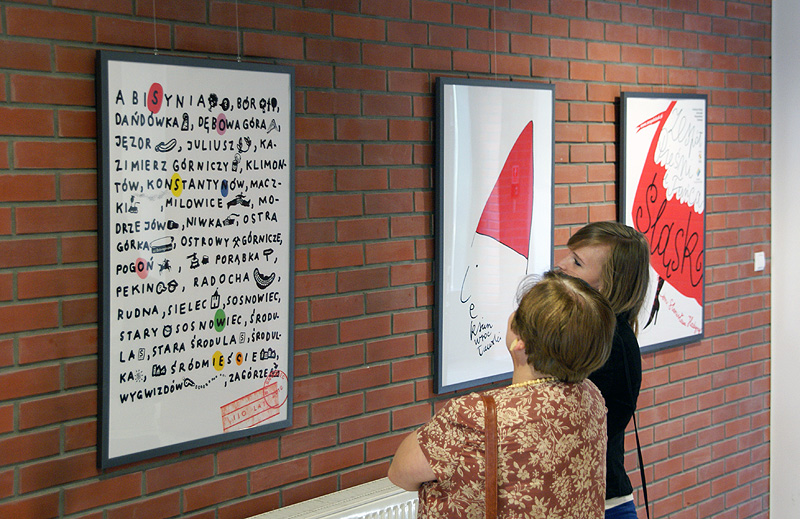 ABISYNIA, BÓR,
DAŃDÓWKA, DĘBOWA GÓRA,
JĘZOR, JULIUSZ, KA-
ZIMIERZ GÓRNICZY, KLIMON-
TÓW, KONSTANTYNÓW, MACZ-
KI, MILOWICE, MO-
DRZEJÓW, NIWKA, OSTRA
GÓRKA, OSTROWY GÓRNICZE,
POGOŃ, PORĄBKA,
PEKIN, RADOCHA,
RUDNA, SIELEC, SOSNOWIEC,
STARY SOSNOWIEC, ŚRODU-
LA, STARA ŚRODULA, ŚRODUL-
KA, ŚRÓDMIEŚCIE,
WYGWIZDÓW, ZAGÓRZE
Śląsk